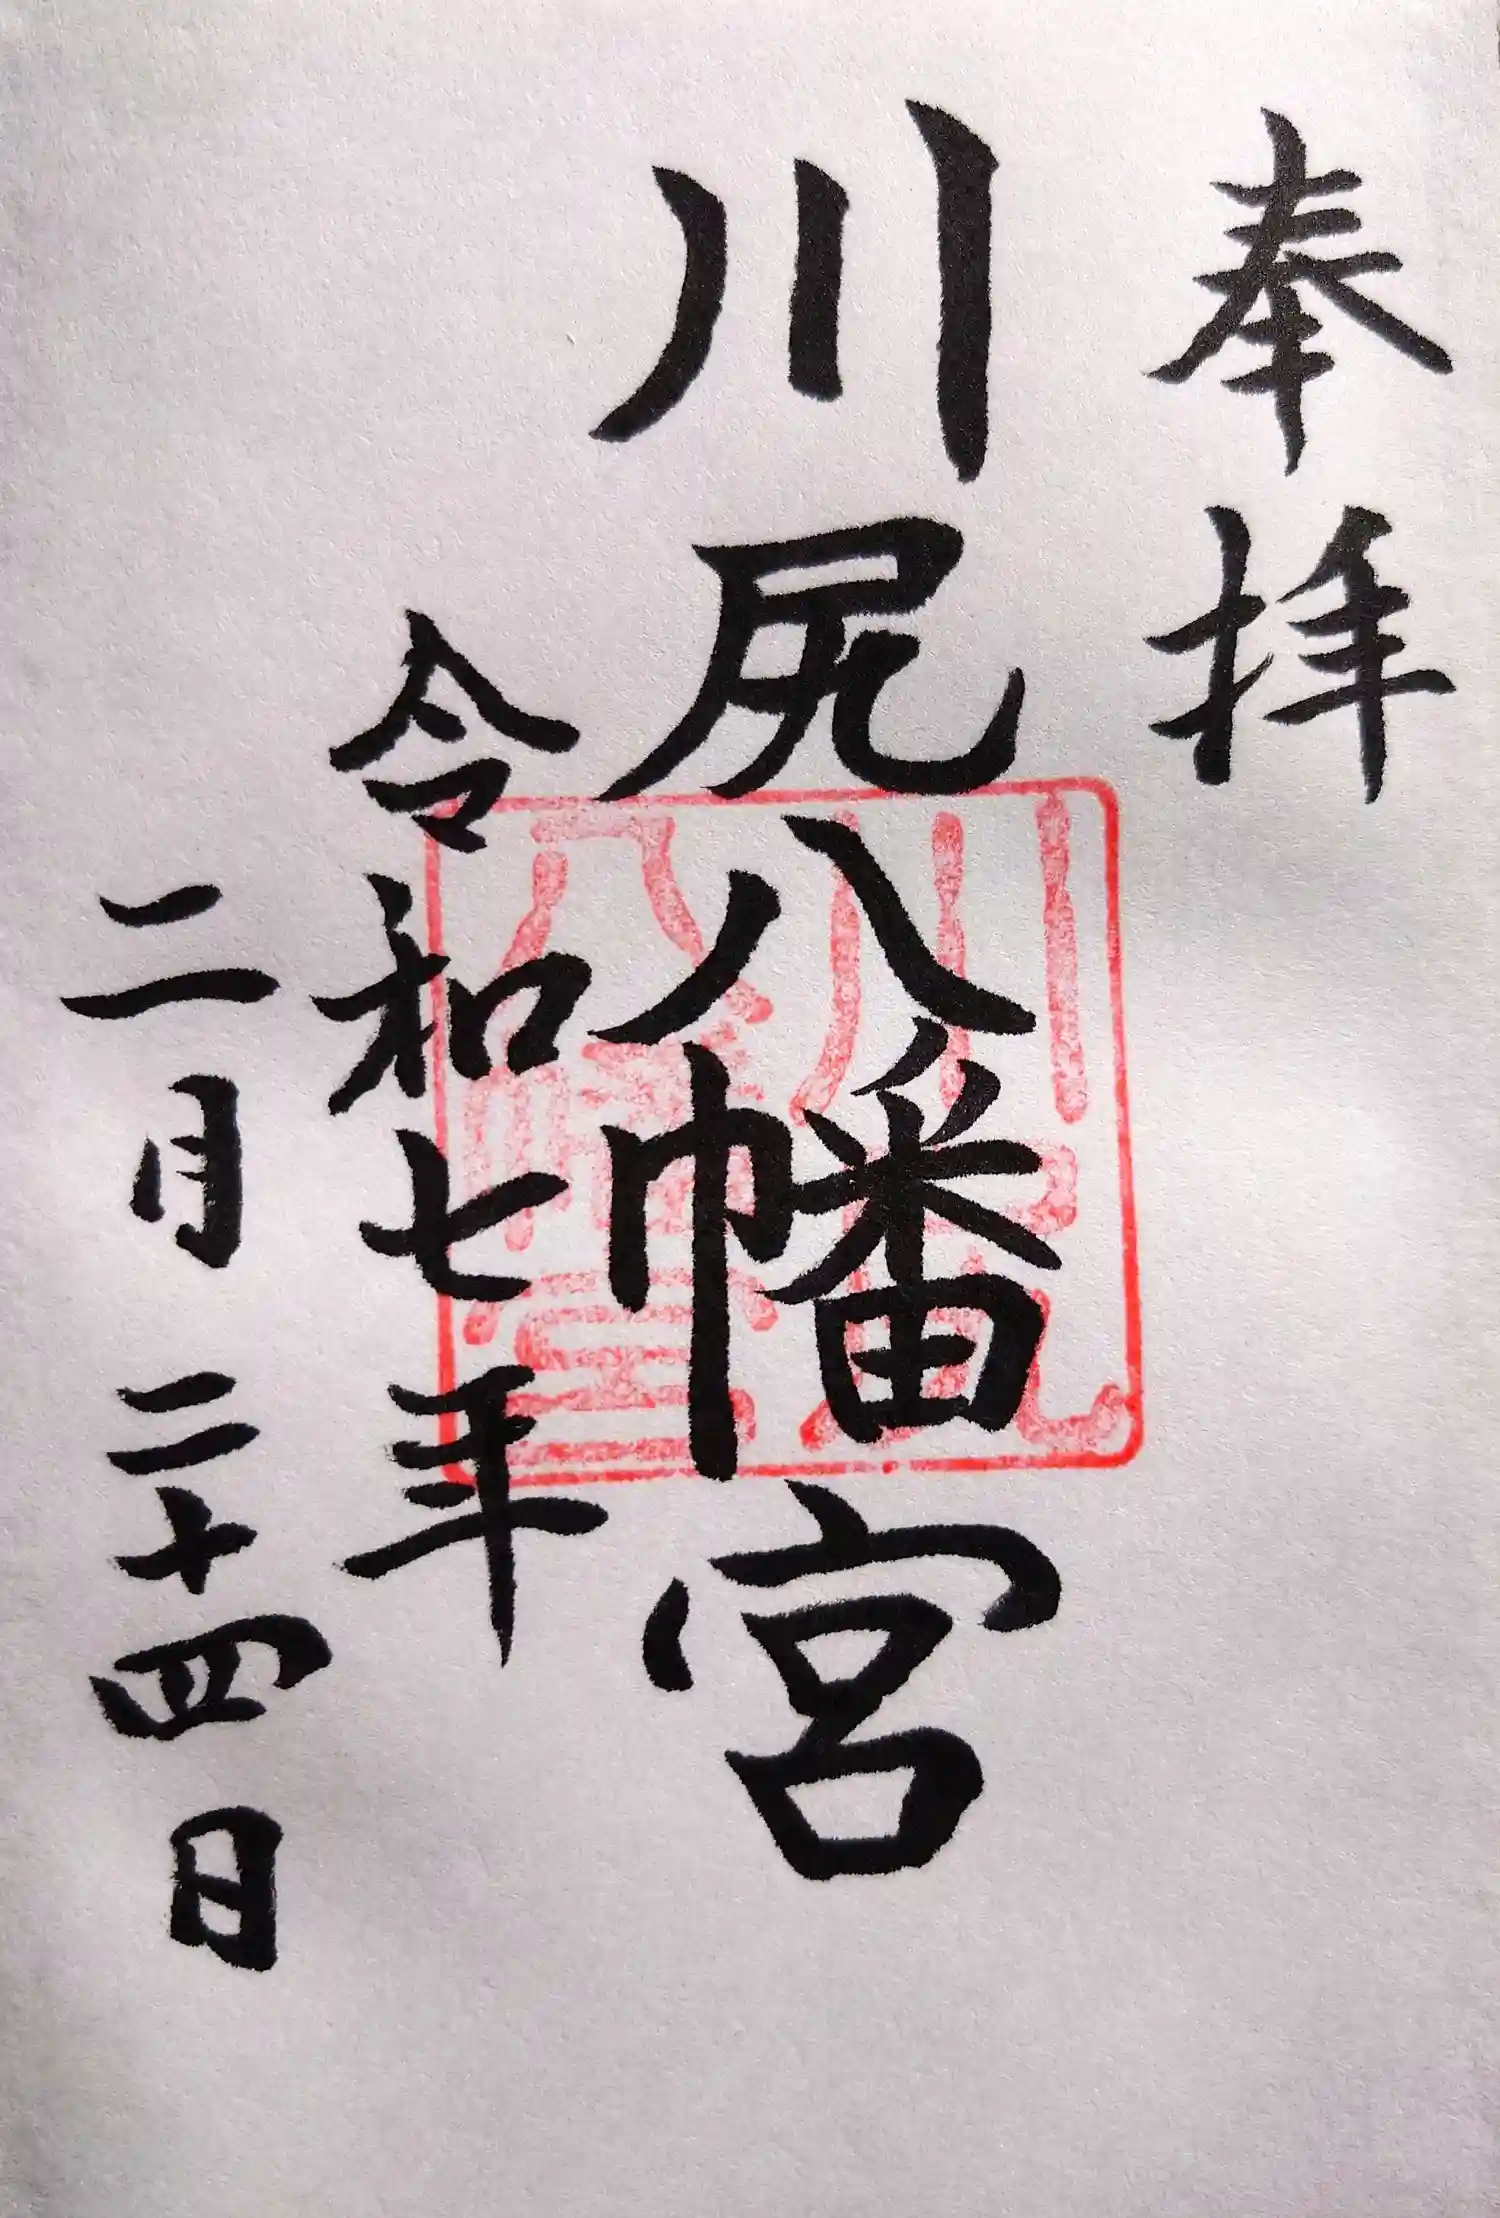 奉拝
川尻八幡宮
令和七年
二月二十四日
川尻
八幡宮